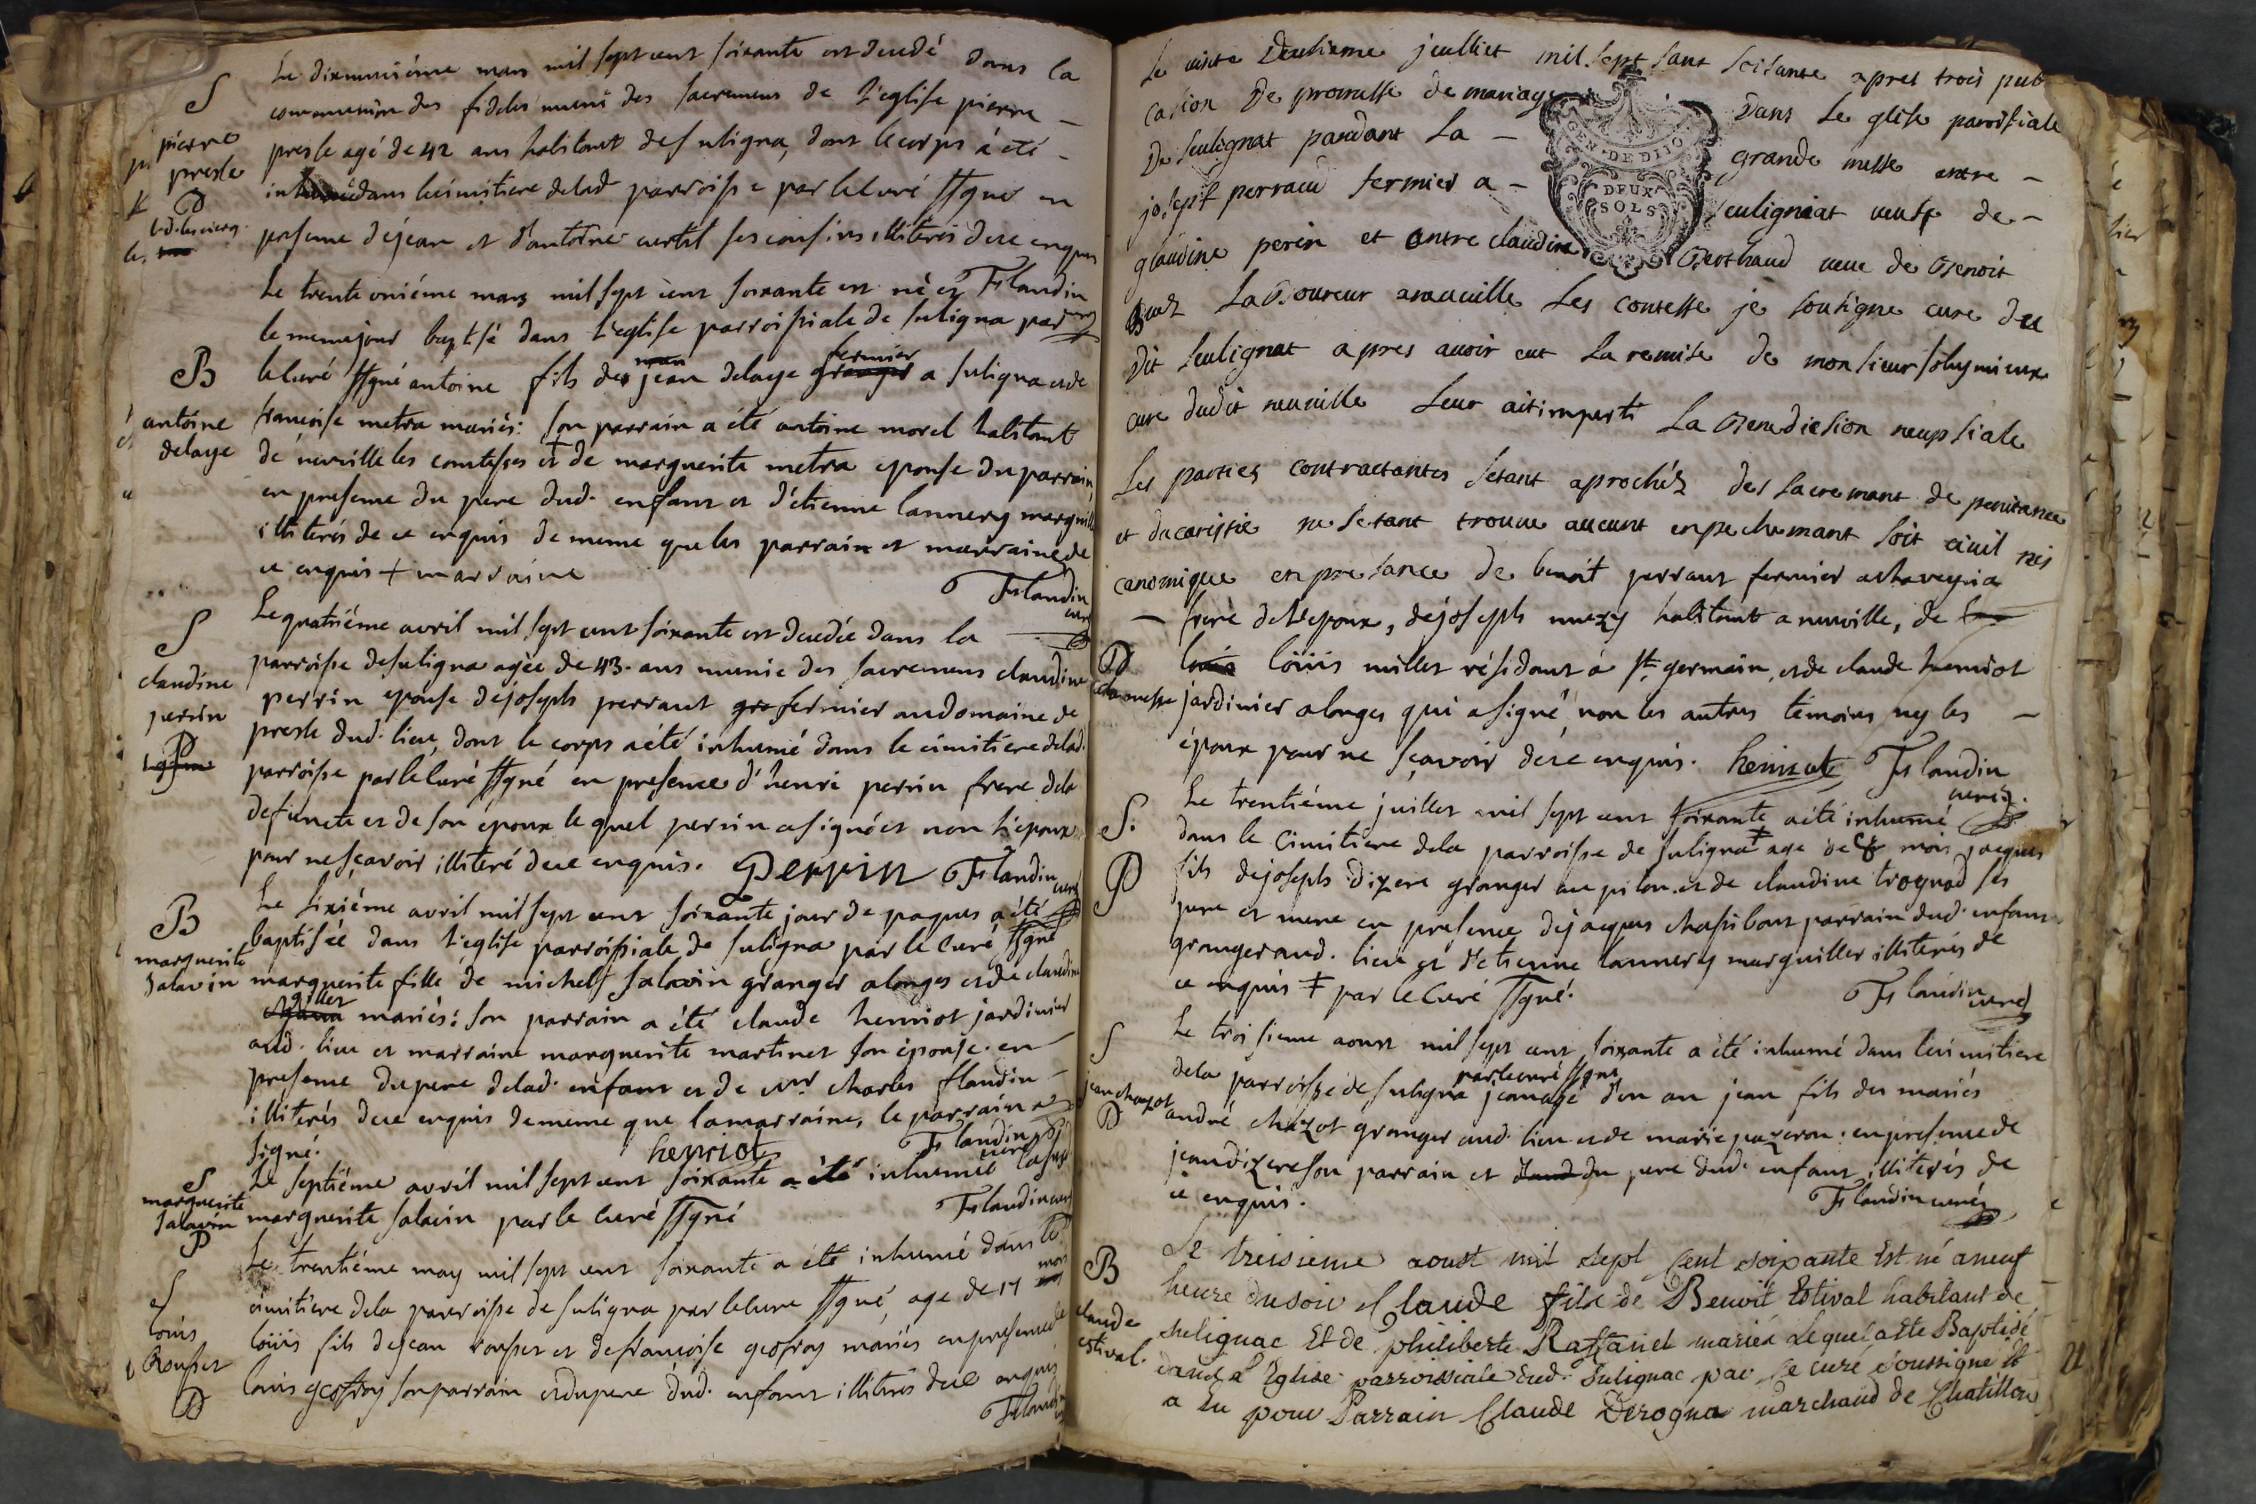 S
pierre
presle
P
Le dixneuvième mars mil sept cent soixante est decedé dans la
communion des fideles muni des sacremens de l'eglise pierre –
presle agé de 42 ans habitant de suligna, dont le corps a été –
inhumé dans le cimitiere de lad. parroisse par le curé ssgné en
presence de jean et d'antoine curtil ses cousins illiterés de ce enquis
Flandin
curé
Le trente unième mars mil sept cent soixante est né et
le meme jour baptisé dans l'eglise parroissiale de suligna par
B
antoine
delaye
le curé ssgné antoine fils de jean delaye fermier a suligna et de
francoise metra mariés: son parrain a été antoine morel habitant
de neuville les comtesses et de marguerite metra epouse du parrain,
en presence du pere dud. enfant et d'étienne lannery marguiller
illiterés de ce enquis de meme que les parrain et marraine de
ce enquis + marraine
Flandin
curé
S
claudine
perrin
P
Le quatrième avril mil sept cent soixante est decedée dans la
parroisse de suligna agée de 43 ans munie des sacremens claudine
perrin epouse de joseph perraut fermier au domaine de
presle dud. lieu, dont le corps a été inhumé dans le cimitiere de lad.
parroisse par le curé ssgné en presence d'henri perrin frere de la
defuncte et de son epoux le quel perrin a signé et non l'epoux
pour ne sçavoir illiteré de ce enquis. Perrin Flandin
curé
B
marguerite
salavin
Le sixième avril mil sept cent soixante jour de paques a été
baptisée dans l'eglise parroissiale de suligna par le curé ssgné
marguerite fille de michel salavin granger a longes et de claudine
gillet mariés: son parrain a été claude henriot jardinier
aud. lieu et marraine marguerite martinet son épouse. en
presence du pere de lad. enfant et de charles flandin –
illiterés de ce enquis de meme que la marraine, le parrain a
signé. henriot Flandin
curé
S
marguerite
salavin
P
Le septième avril mil sept cent soixante a été inhumée
marguerite salavin par le curé ssgné
Flandin curé
S
louis
Rousset
P
Le trentième may mil sept cent soixante a été inhumé dans le
cimitiere de la parroisse de suligna par le curé ssgné, age de 17 mois
louis fils de jean rousset et de francoise geofroy mariés en presence de
louis geofroy son parrain et du pere dud. enfant illiterés de ce enquis
Flandin
GEN. DE DIJON
DEUX
SOLS
Le vinte Deuhieme jeulliet mil sept sant soisante apret trois publi
casion De promesse de mariage Dans Le glise parroissiale
De seulignat pandant La – grande messe entre –
joseph perraud fermier a – seulignat veuf de –
glaudine perin et antre claudine Berthaud veuve de Benoit
La Boureur a neuville Les contesse je soutigne cure du
Dit seulignat apres avoir eut La remise de monsieur
cure dudit neuville Leur ait imparti La Benediction neupsiale
Les parties contractantes setant aprochéz des sacremant de penitance
et ducaristie ne setant trouve aucunt enpechemant soit civil nis
canonique en presance de benoit perraut fermier a
– frere de l'epoux, de joseph muezy habitant a neuville, de
louis millet résidant à st germain, et de claude henriot
jardinier a longes qui a signé, non les autres témoins ny les –
époux pour ne sçavoir de ce enquis. henriot Flandin
curé
S.
P
Le trentième juillet mil sept cent soixante a été inhumé
dans le cimitiere de la parroisse de suligna ‡ age de mois jacques
fils de joseph dizere granger au pilon et de claudine troynad ses
pere et mere en presence de jacques parrain dud. enfant
granger aud. lieu et d'étienne lannery marguiller illiterés de
ce enquis ‡ par le curé ssgné.
Flandin curé
S
jean chazot
P
Le troisieme aoust mil sept cent soixante a été inhumé dans le cimitiere
de la parroisse de suligna par le curé ssgné agé d'un an jean fils des mariés
andré chazot granger aud. lieu et de marie pazeron: en presence de
jean dizere son parrain et du pere dud. enfant illiterés de
ce enquis.
Flandin curé
B
claude
estival.
Le treisieme aoust mil sept cent soixante Est né a neuf
heure du soir Claude fils de Benoit Estival habitant de
sulignac Et de philiberte Raffanel mariés Lequel a Ete Baptisé
dans L'Eglise parroissiale dud. Sulignac par Le curé soussigne Et
a Eu pour Parrain Claude Derogna marchand de Chatillon